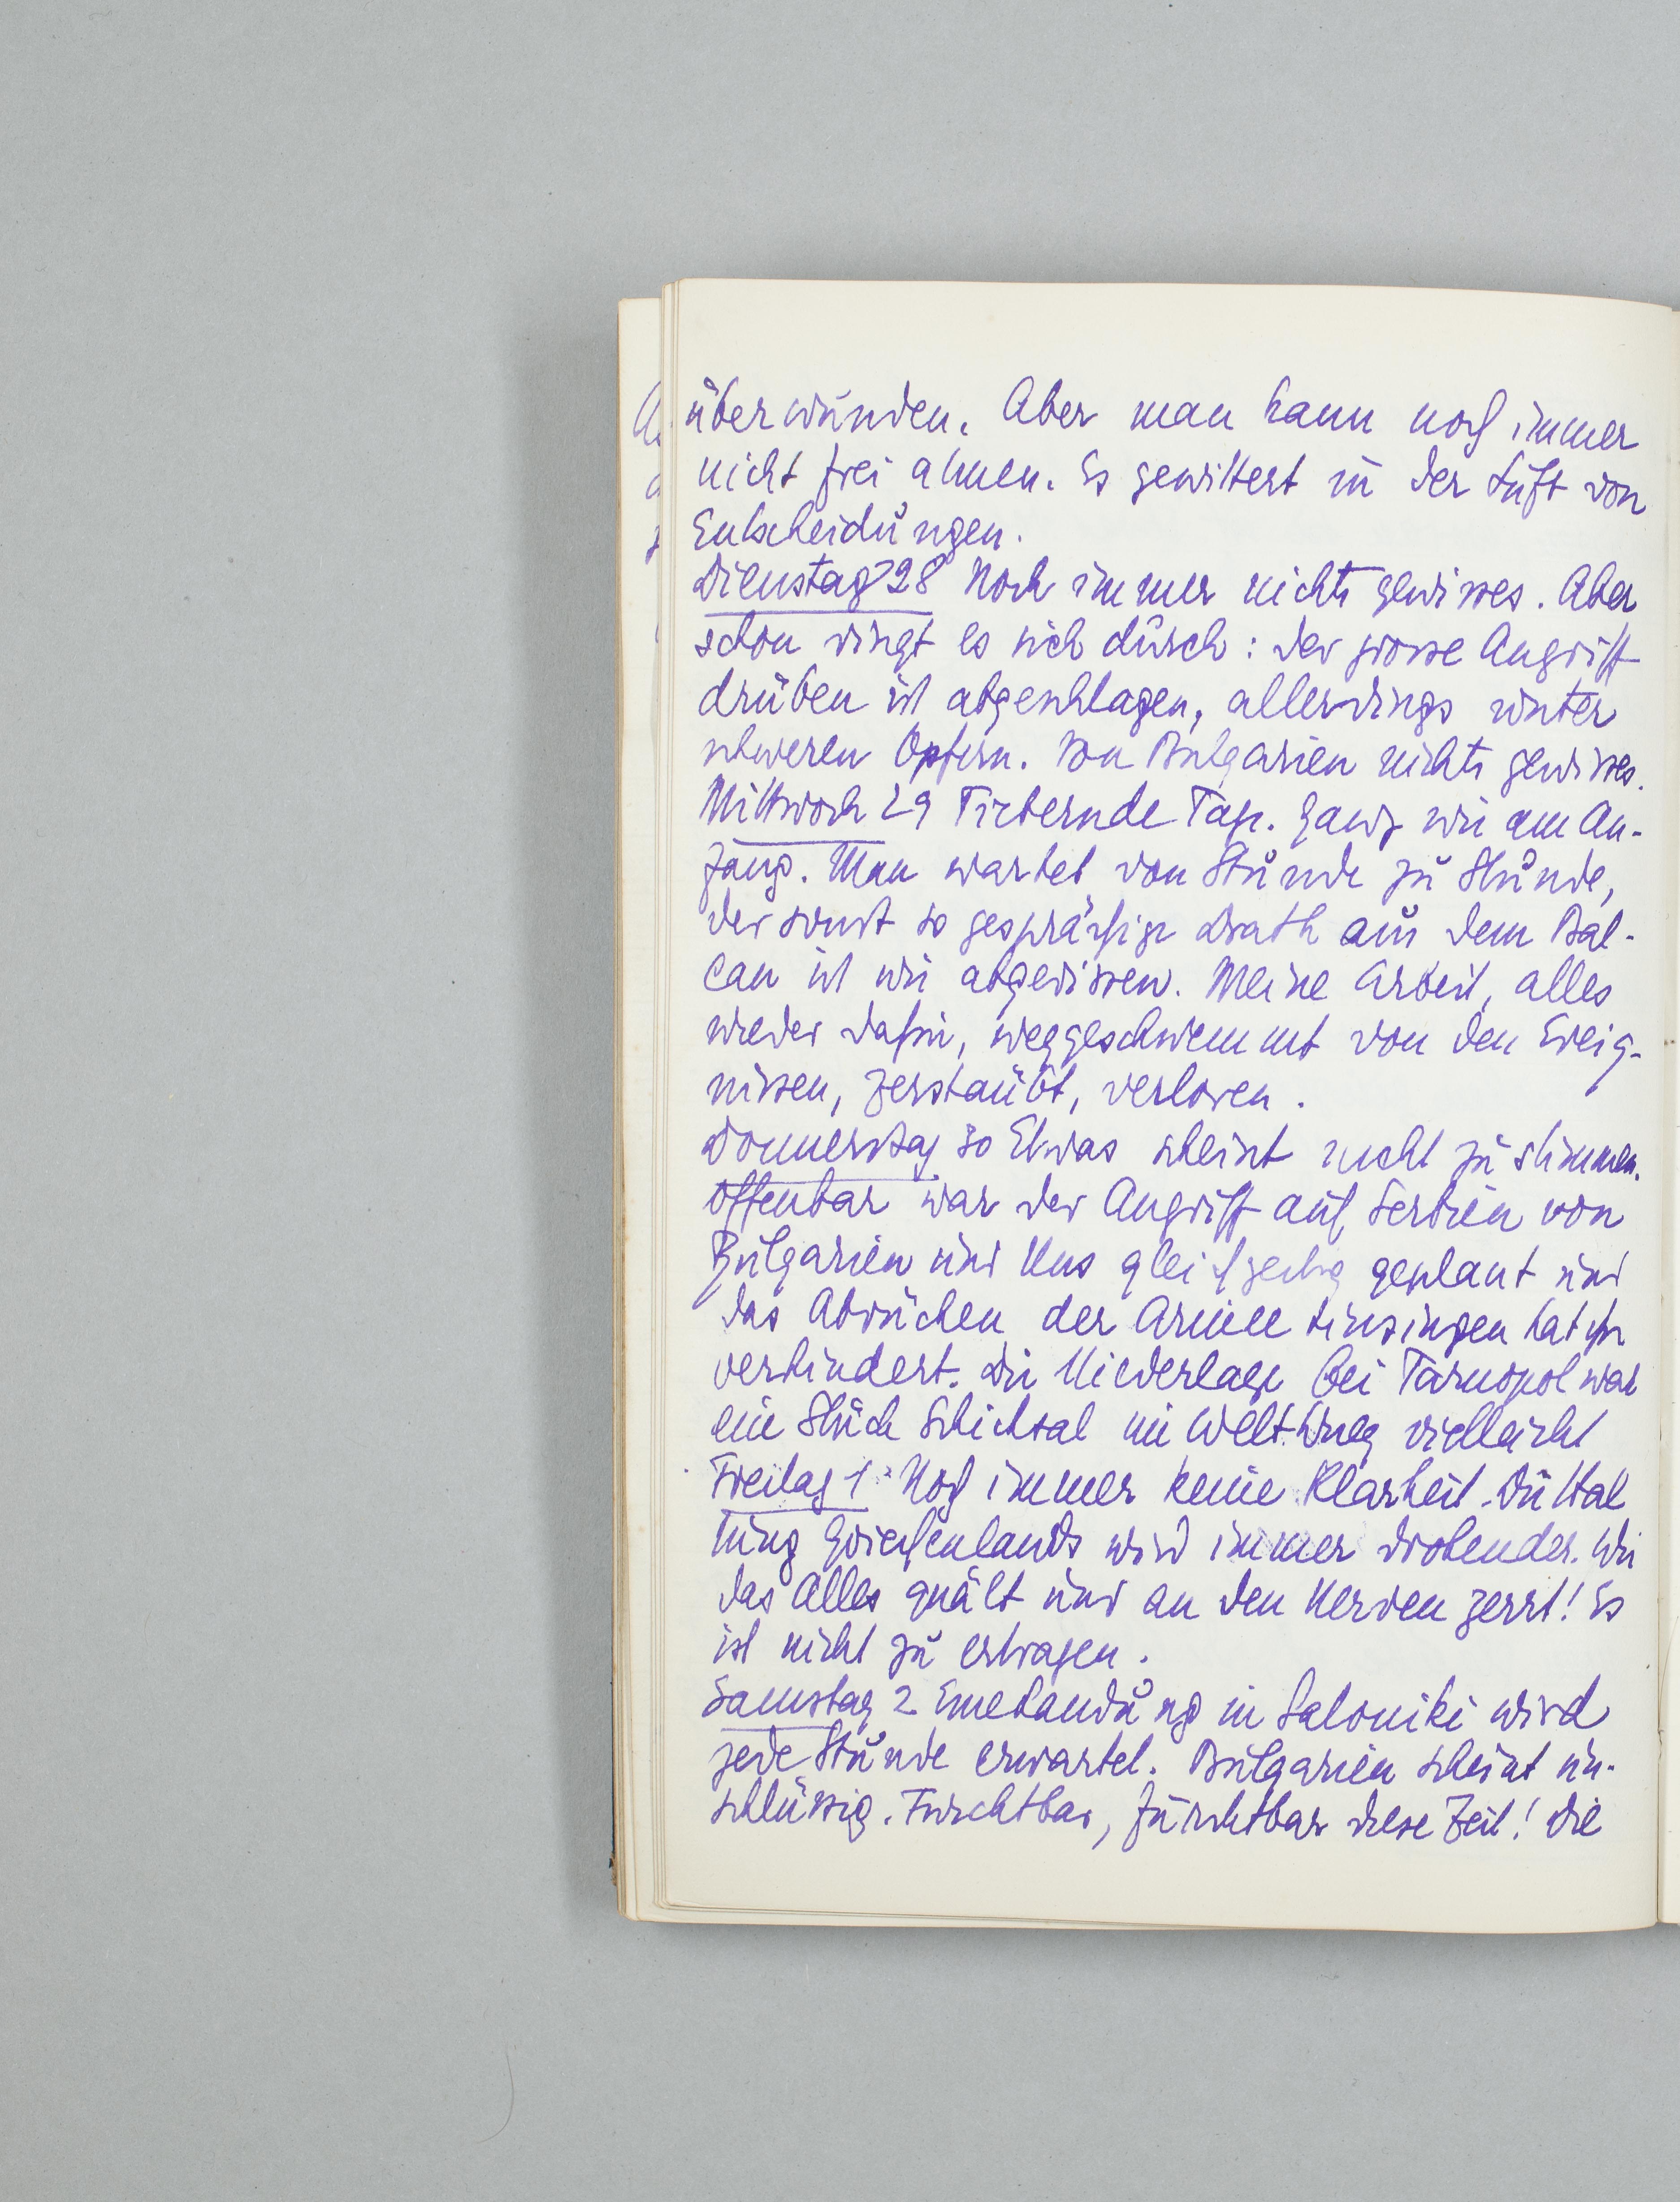 überwunden. Aber man kann noch immer
nicht frei atmen. Es gewittert in der Luft von
Entscheidungen.
Dienstag 28 Noch immer nichts gewisses. Aber
schon ringt es sich durch: der grosse Angriff
drüben ist abgeschlagen, allerdings unter
schweren Opfern. Von Bulgarien nichts gewisses.
Mittwoch 29 Fiebernde Tage. Ganz wie am An-
fang. Man wartet von Stunde zu Stunde,
der sonst so gesprächige Drath aus dem Bal-
can ist wie abgerissen. Meine Arbeit, alles
wieder dahin, weggeschwemmt von den Ereig-
nissen, zerstäubt, verloren.
Donnerstag 30 Etwas scheint nicht zu stimmen.
Offenbar war der Angriff auf Serbien von
Bulgarien und Uns gleichzeitig geplant und
das Abrücken der Armee Linsingen hat ihn
verhindert. Die Niederlage bei Tarnopol war
ein Stück Schicksal im Weltkrieg vielleicht
Freitag 1. Noch immer keine Klarheit. Die Hal
tung Griechenlands wird immer drohender. Wie
das Alles quält und an den Nerven zerrt! Es
ist nicht zu ertragen.
Samstag 2 Eine Landung in Saloniki wird
jede Stunde erwartet. Bulgarien scheint un-
schlüssig. Furchtbar, furchtbar diese Zeit! Die